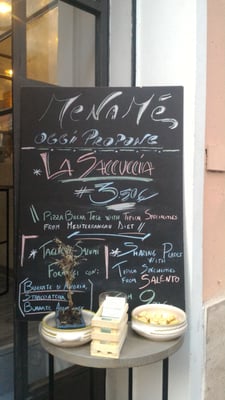 MeNaMé
OGGI PROPONE
* LA SACCUCCIA
3,50€
PIZZA BREAD
WITH TYPICAL SPECIALITIES
FROM MEDITERRANEAN DIET
* TAGLIERI SALUMI
FORMAGGI CON:
BURRATE D'ANDRIA,
STRACCIATELLA
BURRATE
* SHARING PLATES
WITH
TYPICAL SPECIALITIES
FROM SALENTO
9